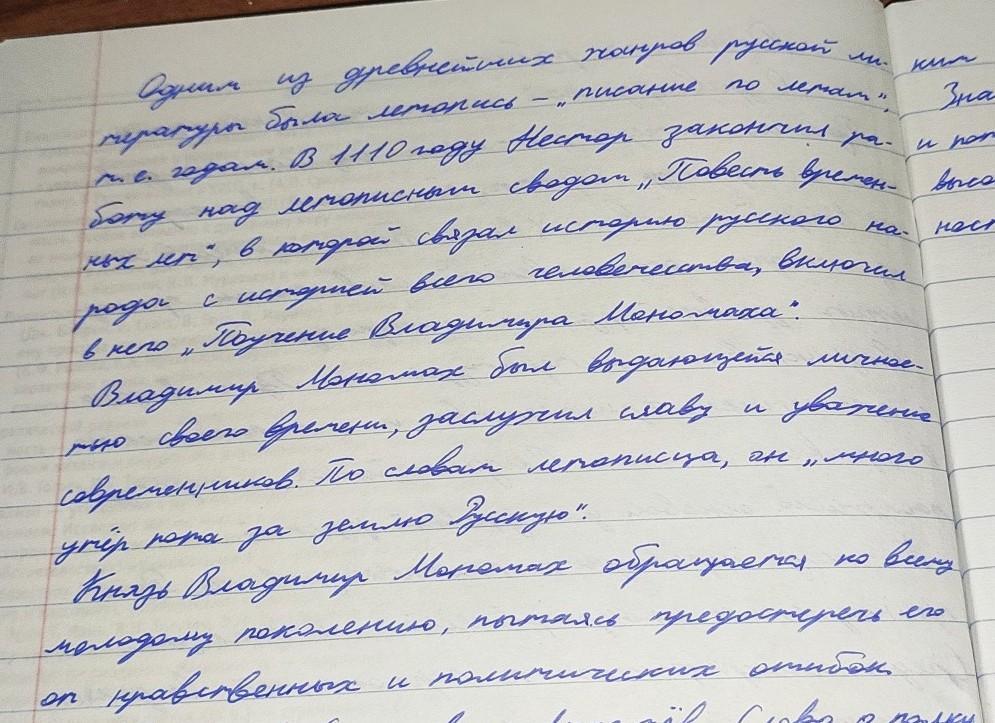 Одним из древнейших жанров русской ли-
тературы была летопись – „писание по летам",
т.е. годам. В 1110 году Нестор закончил ра-
боту над летописным сводом „Повесть времен-
ных лет", в которой связал историю русского на-
рода с историей всего человечества, включил
в него „Поучение Владимира Мономаха".
Владимир Мономах был выдающейся личнос-
тью своего времени, заслужил славу и уважение
современников. По словам летописца, он „много
утёр пота за землю Русскую".
Князь Владимир Мономах обращается ко всему
молодому поколению, пытаясь предостеречь его
от нравственных и политических ошибок.
Слово о полку
ким
Зна
и пот
высо
ност